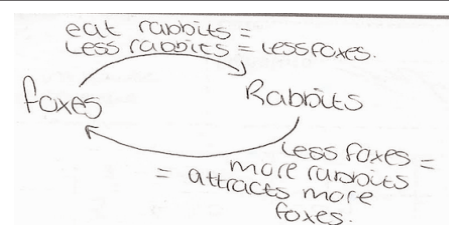 eat rabbits =
Less rabbits = less foxes.
foxes
Rabbits
Less foxes =
more rabbits
= attracts more
foxes.